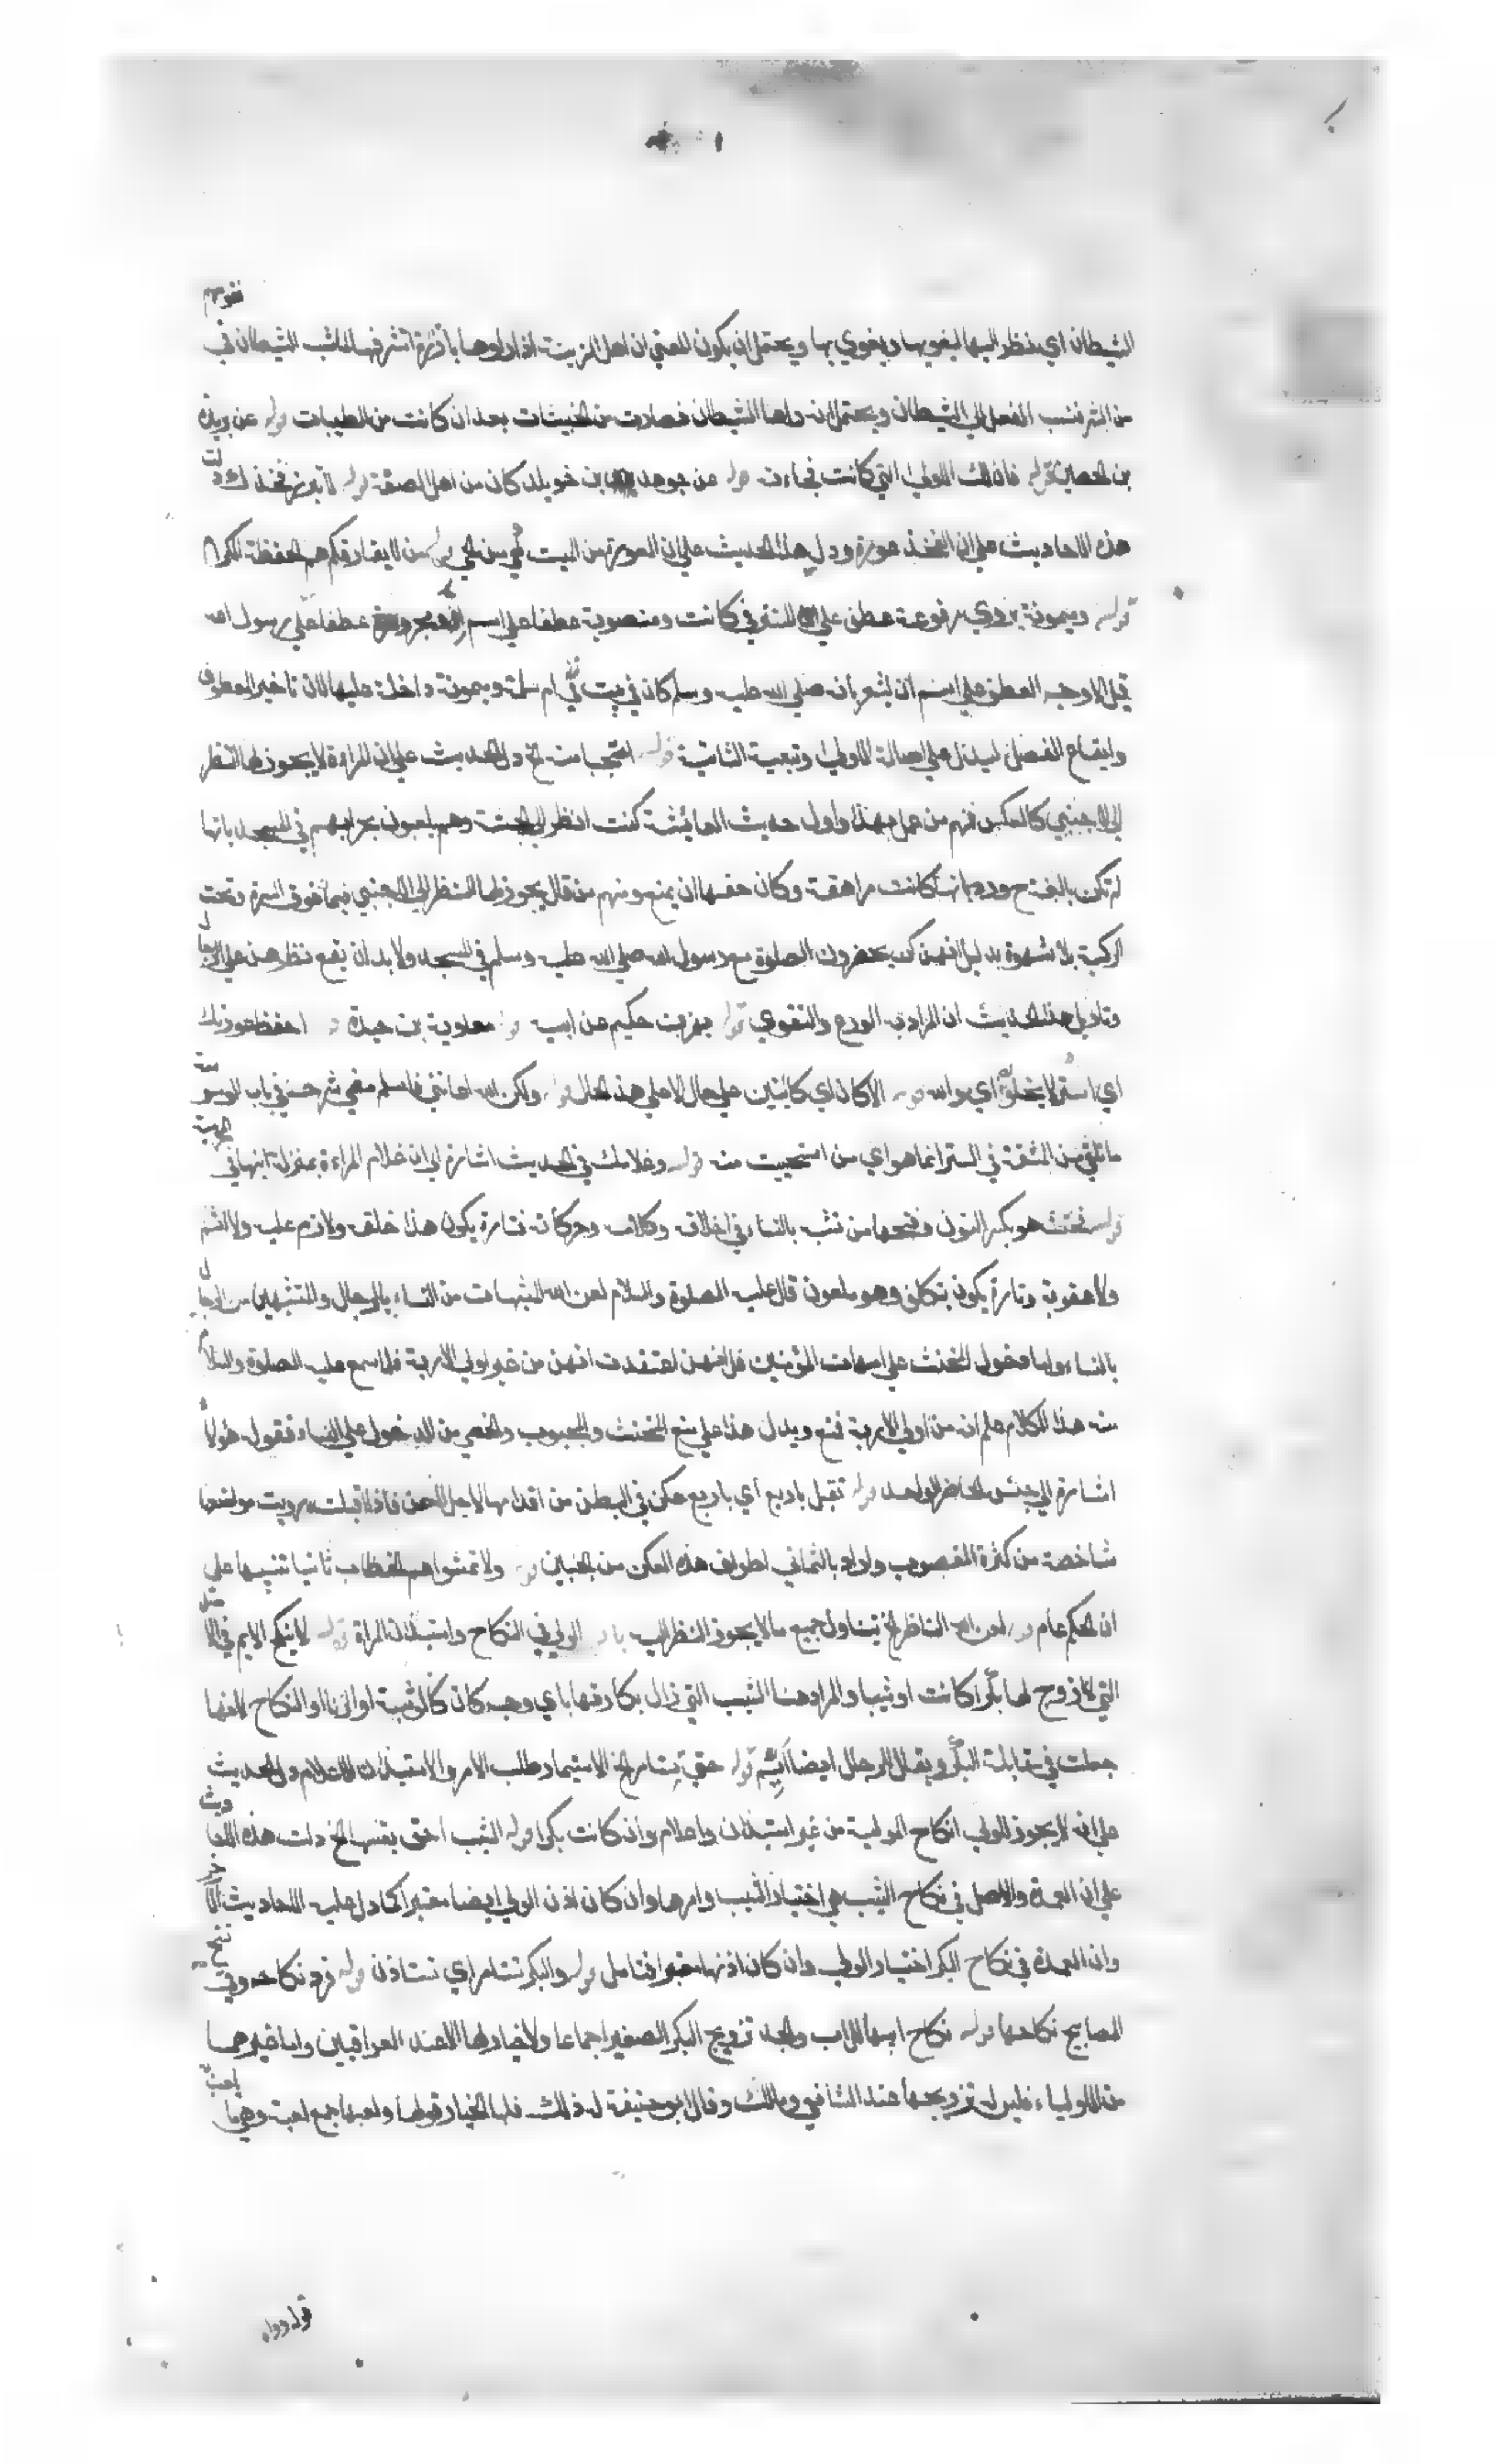 الشيطان اي ينظر اليها ليغويها ويغوي بها ويحتمل ان يكون المعنى ان اهل الزينة اذا راوها بارزة اشرفها لما بث الشيطان في نفوسهم
من الشر فنسب الفعل الى الشيطان ويحتمل انه راها الشيطان فصارت من الخبيثات بعد ان كانت من الطيبات قوله عن بريدة
بن الحصين قوله فان لك الاولى التي كانت فجاءت قوله عن جرهد بن خويلد كان من اهل الصفة قوله لا تبرز فخذك دلت
هذه الاحاديث على ان الفخذ عورة ودل هذا الحديث على ان العورة من الميت هي من الحي قوله من لا يفارقكم هم الحفظة الكرام
قوله وميمونة يروي مرفوعة عطف على المستتر في كانت ومنصوبة عطفا على اسم ان ومجرورة عطفا على رسول الله
قيل الاوجه العطف على اسم ان ليشعر بانه صلى الله عليه وسلم كان في بيت ام سلمة وميمونة داخلة عليها لان تاخير المعطوف
وايقاع الفصل ليدل على اصالة الاولى وتبعية الثانية قوله احتجبا منه الخ دل الحديث على ان المراءة لا يجوز لها النظر
الى الاجنبي كالعكس فمنهم من عمل بهذا واول حديث العائشة كنت انظر الى الحبشة وهم يلعبون بحرابهم في المسجد بانها
لم تكن بالغة ح ورد بانها كانت مراهقة وكان حقها ان يمنع ومنهم من قال يجوز لها النظر الى الاجنبي فيما فوق السرة وتحت
الركبة بلا شهوة بدليل انهن كن يحضرون الصلوة مع رسول الله صلى الله عليه وسلم في المسجد ولا بد ان يقع نظرهن على الرجال
وتاويل هذا الحديث ان المراد به الورع والتقوى قوله بهز بن حكيم عن ابيه قوله معاوية بن حيدة قوله احفظ عورتك
اي استر قوله الا كان اي كائنين على حال الا على هذه الحال قوله ولكن الله اعانني فاسلم مضى شرحه في باب الوسوسة
ما تلقى من المشقة في الستر انما هو اي من استحييت منه قوله وغلامك في الحديث اشارة الى ان غلام المراءة بمنزلة ابنها في المحرمية
قوله مخنث هو بكسر النون وفتحها من تشبه بالنساء في اخلاقه وكلامه وحركاته فتارة يكون هذا خلقه ولا ذم عليه ولا اثم
ولا عقوبة وتارة يكون بتكلف وهو ملعون قال عليه الصلوة والسلام لعن الله المتشبهات من النساء بالرجال والمتشبهين من الرجال
بالنساء واما دخول المخنث على امهات المؤمنين فلانهن اعتقدت انهن من غير اولي الاربة فلما سمع عليه الصلوة والسلام
منه هذا الكلام علم انه من اولي الاربة فمنع ويدل هذا على منع المخنث والمجبوب والخصي من الدخول على النساء فقوله هؤلاء
اشارة الى جنس الحاضر الواحد قوله تقبل باربع اي باربع عكن في البطن من اقدامها لاجل السمن فاذا اقبلت رويت مواضعها
شاخصة من كثرة الغضون واراد بالثماني اطراف هذه العكن من الجنبين قوله ولا تمشوا هم الخطاب ثانيا تنبيها على
ان الحكم عام قوله لعن الله الناظر الخ يتناول جميع ما لا يجوز النظر اليه باب الولي في النكاح واستيذان المراة قوله لا ينكح الايم في الاصل
التي لا زوج لها بكرا كانت او ثيبا والمراد هنا الثيب التي زال بكارتها باي وجه كان كالوثبة او الزنا او النكاح لانها
جعلت في مقابلة البكر ويقال للرجال ايضا ايم قوله حتى يستامر الخ الاستيمار طلب الامر والاستيذان الاعلام دل الحديث
على انه لا يجوز للولي انكاح المولية من غير استيذان واعلام وان كانت بكرا قوله الثيب احق بنفسها الخ دلت هذه الاحاديث
على ان العمدة والاصل في نكاح الثيب هي اختيار الثيب وامرها وان كان اذن الولي ايضا معتبرا كما دل عليه الاحاديث الاخر
وان العمدة في نكاح البكر اختيار الولي وان كان اذنها معتبرا فتامل قوله والبكر تستامر اي تستاذن قوله فرد نكاحه وفي نسخ
المصابيح نكاحها قوله نكاح ابيها للاب والجد تزويج البكر الصغير اجماعا ولا خيار لها الا عند العراقيين واما غيرهما
من الاولياء فليس له تزويجها عند الشافعي ومالك وقال ابو حنيفة له ذلك فلها الخيار قولها ولعبها جمع لعبة وهي ما يلعب به
قوله رواه